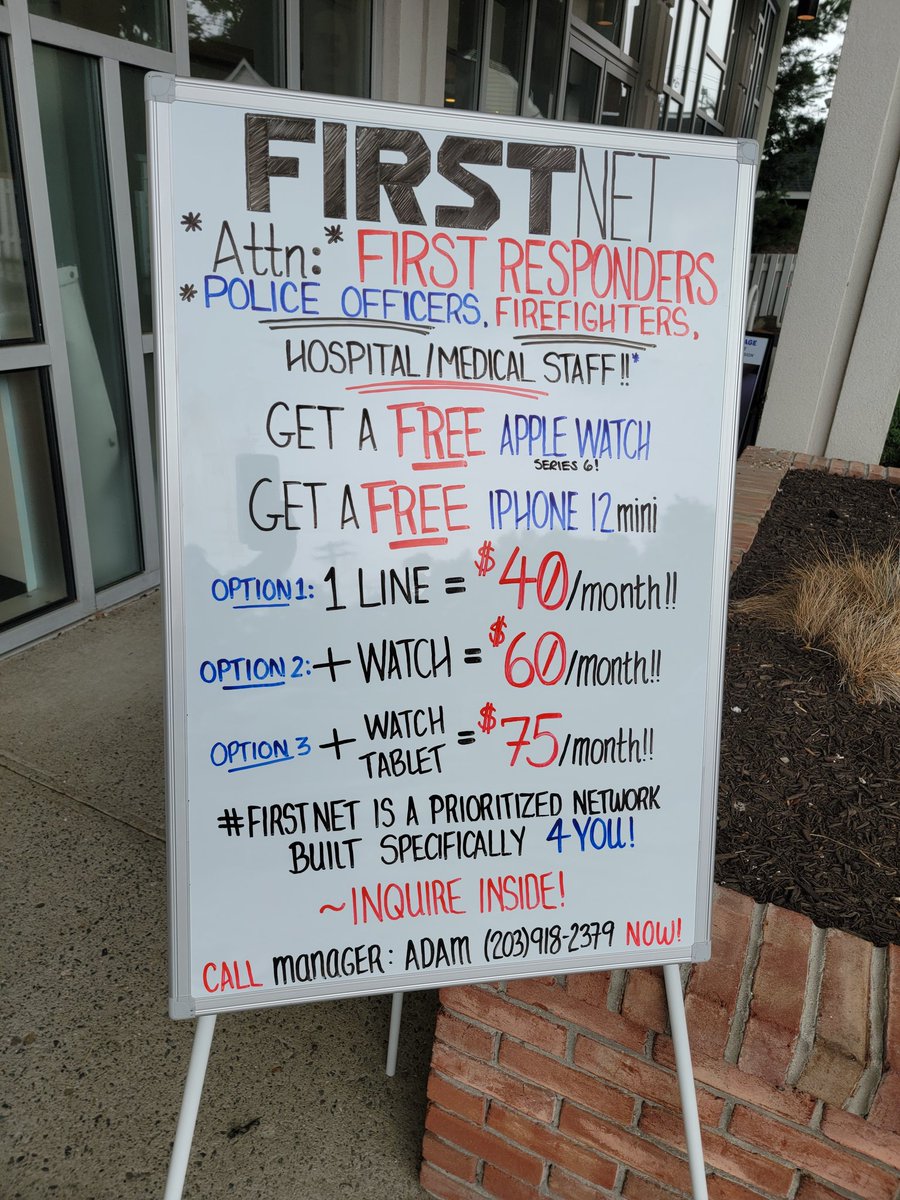 FIRSTNET
*Attn:* FIRST RESPONDERS
*POLICE OFFICERS, FIREFIGHTERS,
HOSPITAL/MEDICAL STAFF!!*
GET A FREE APPLE WATCH
SERIES 6!
GET A FREE IPHONE 12 mini
OPTION 1: 1 LINE = $40/month!!
OPTION 2: + WATCH = $60/month!!
OPTION 3 + WATCH
TABLET = $75/month!!
#FIRSTNET IS A PRIORITIZED NETWORK
BUILT SPECIFICALLY 4 YOU!
~INQUIRE INSIDE!
CALL manager: ADAM (203)918-2379 NOW!